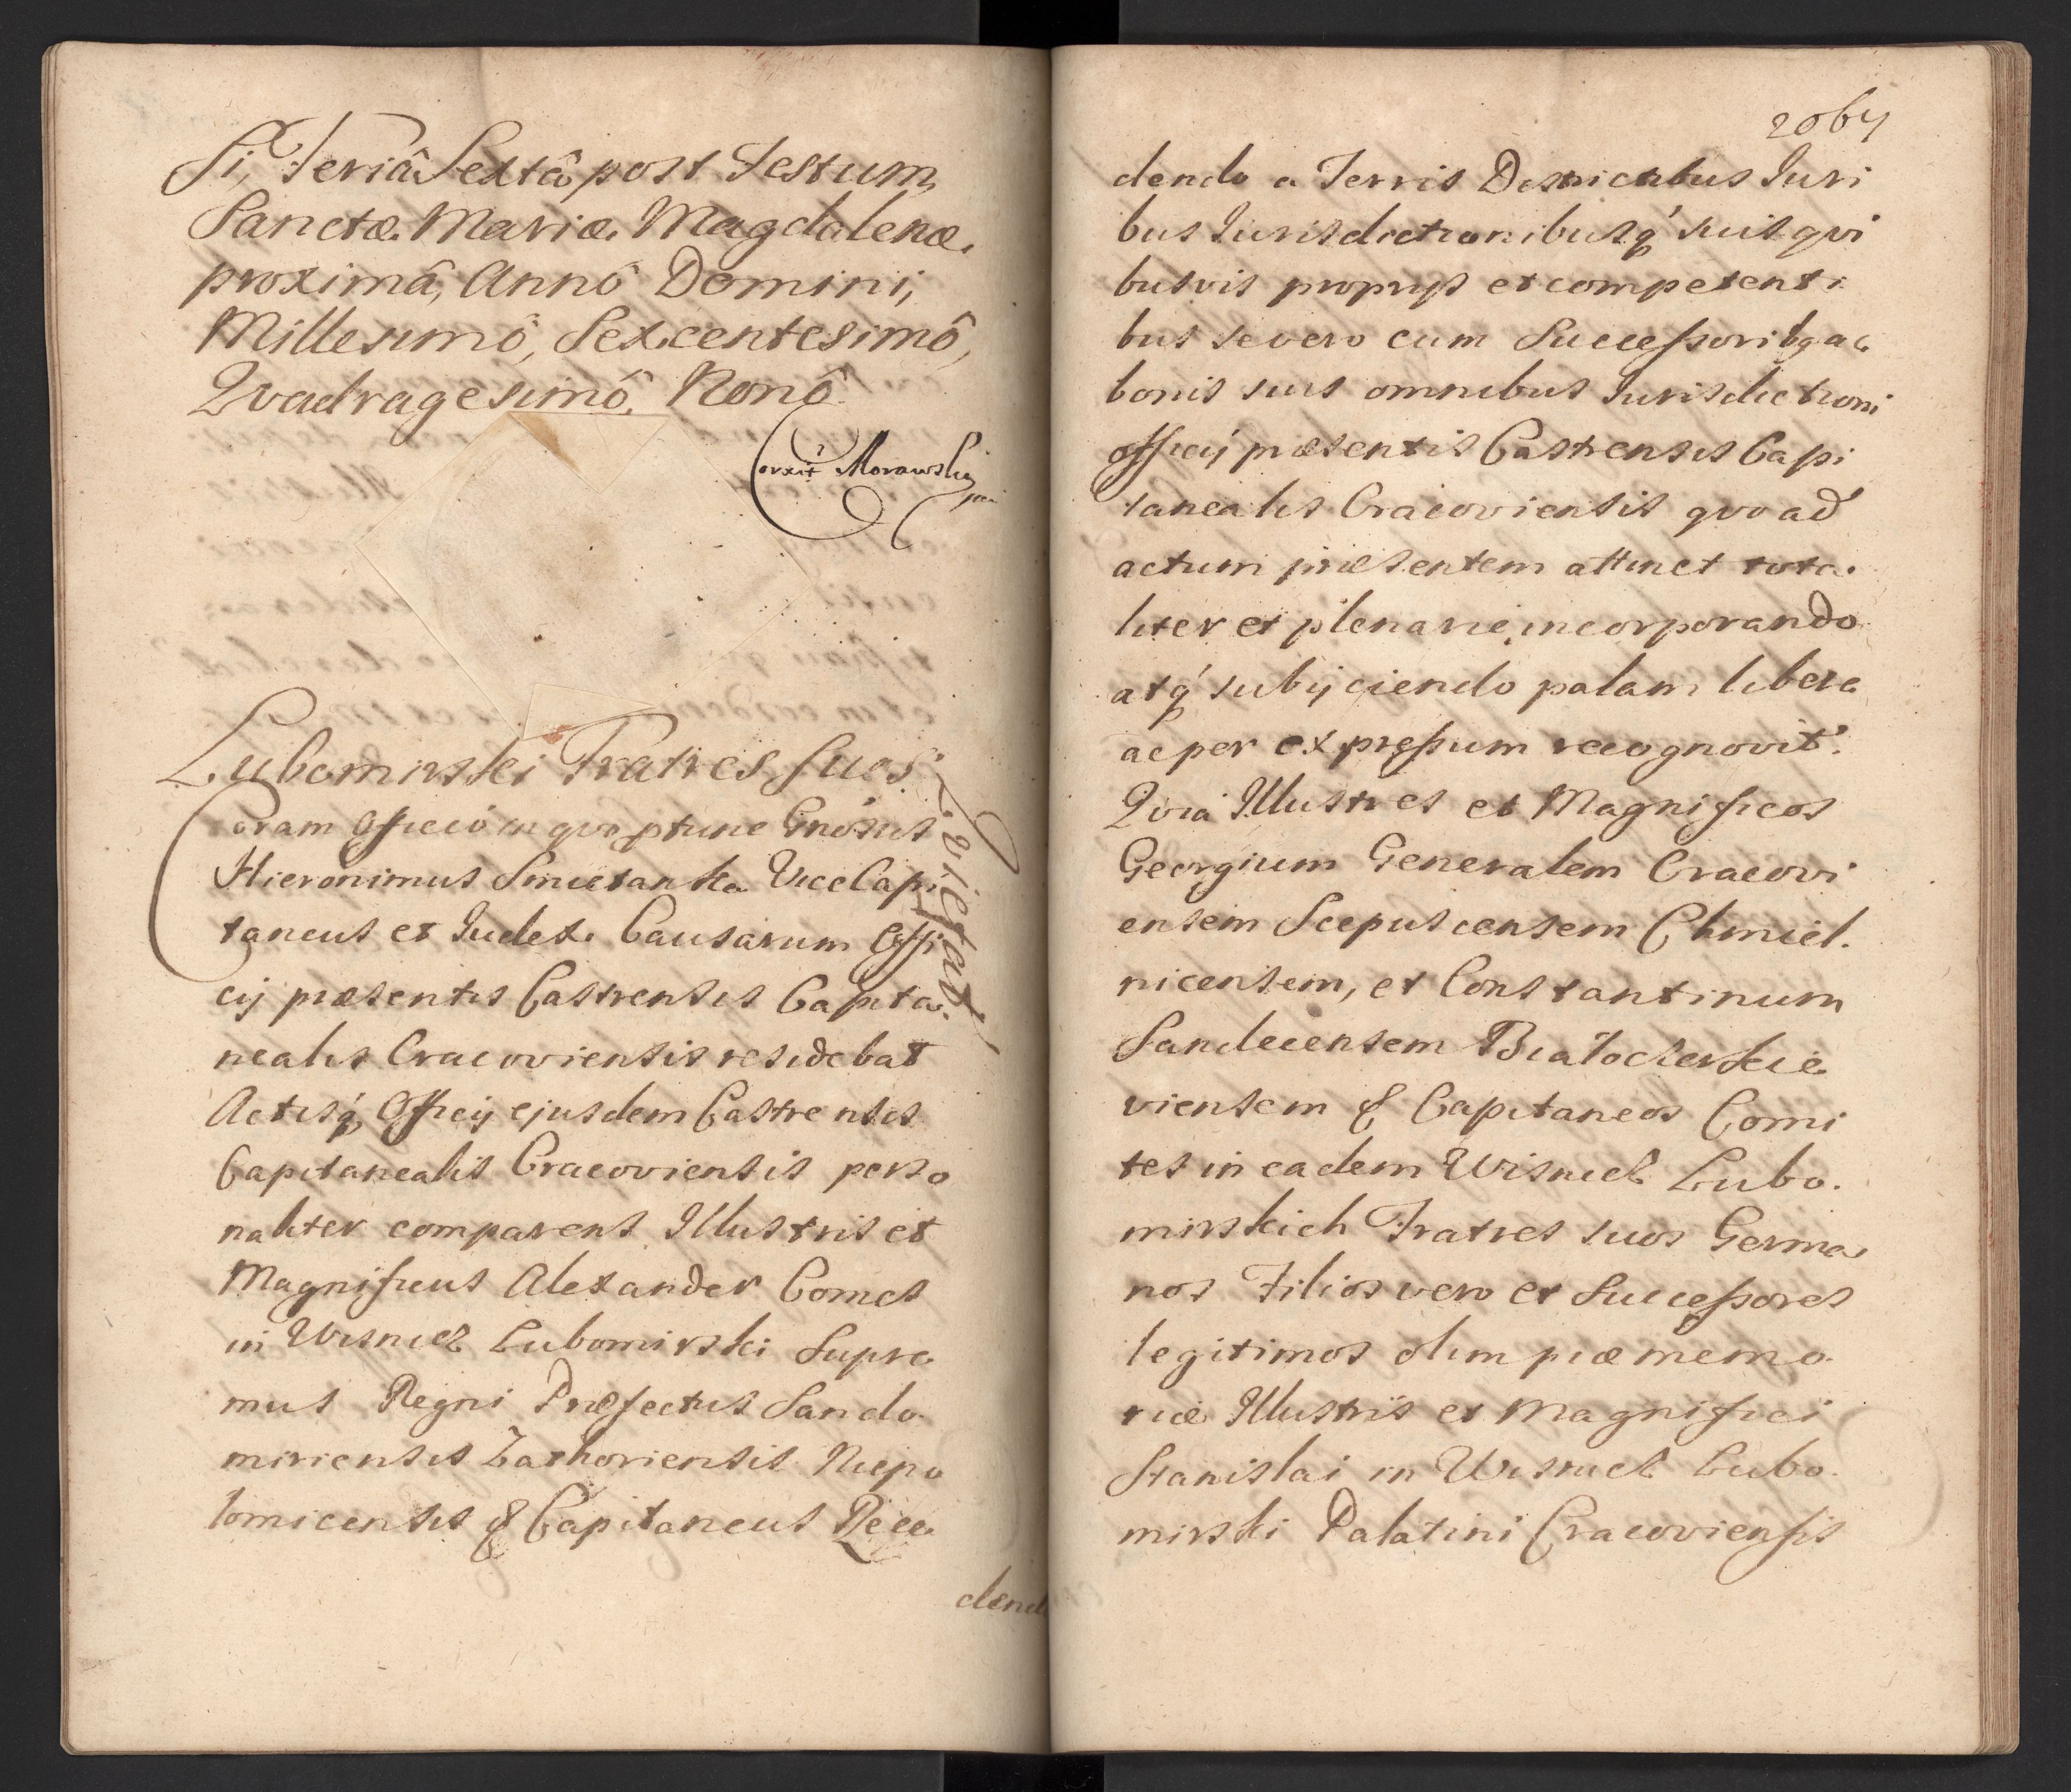 si, Feriâ Sextâ post Festum
Sanctæ Mariæ Magdalenæ
proximâ, Annô Domini,
Millesimô, Sexcentesimô,
Qvadragesimô Nonô.
Corrxit Morawski
Lubomirski Fratres suos
Qvietat
Coram Officio in qvo ptunc Gnosus
Hieronimus Smietanka ViceCapi
taneus et Iudex Causarum Offi
cij præsentis Castrensis Capita
nealis Cracoviensis residebat
Actisq́ Officij ejusdem Castrensis
Capitanealis Cracoviensis perso
naliter comparens Illustris et
Magnificus Alexander Comes
in Wisnicz Lubomirski Supre
mus Regni Præfectus Sando
miriensis Zathoriensis Niepo
lomicensis & Capitaneus Rece
dend
2064
dendo a Terris Districtibus Iuri
bus Iurisdictionibusq́ suis qvi
busvis proprijs et competenti
bus se vero cum Successoribq ac
bonis suis omnibus Iurisdictioni
officij præsentis Castrensis Capi
tanealis Cracoviensis qvo ad
actum præsentem attinet tota
liter et plenarie incorporando
atq́ subijciendo palam libere
ac per expressum recognovit.
Qvia Illustres et Magnificos
Georgium Generalem Cracovi
ensem Scepusiensem Chmiel.
nicensem, et Constantinum
Sandecensem Białocerkie
viensem & Capitaneos Comi
tes in eadem Wisnicz Lubo.
mirskich Fratres suos Germa
nos Filios vero et Successores
legitimos olim piæ memo
riæ Illustris et Magnifici
Stanislai in Wisnicz Lubo.
mirski Palatini Cracoviensis